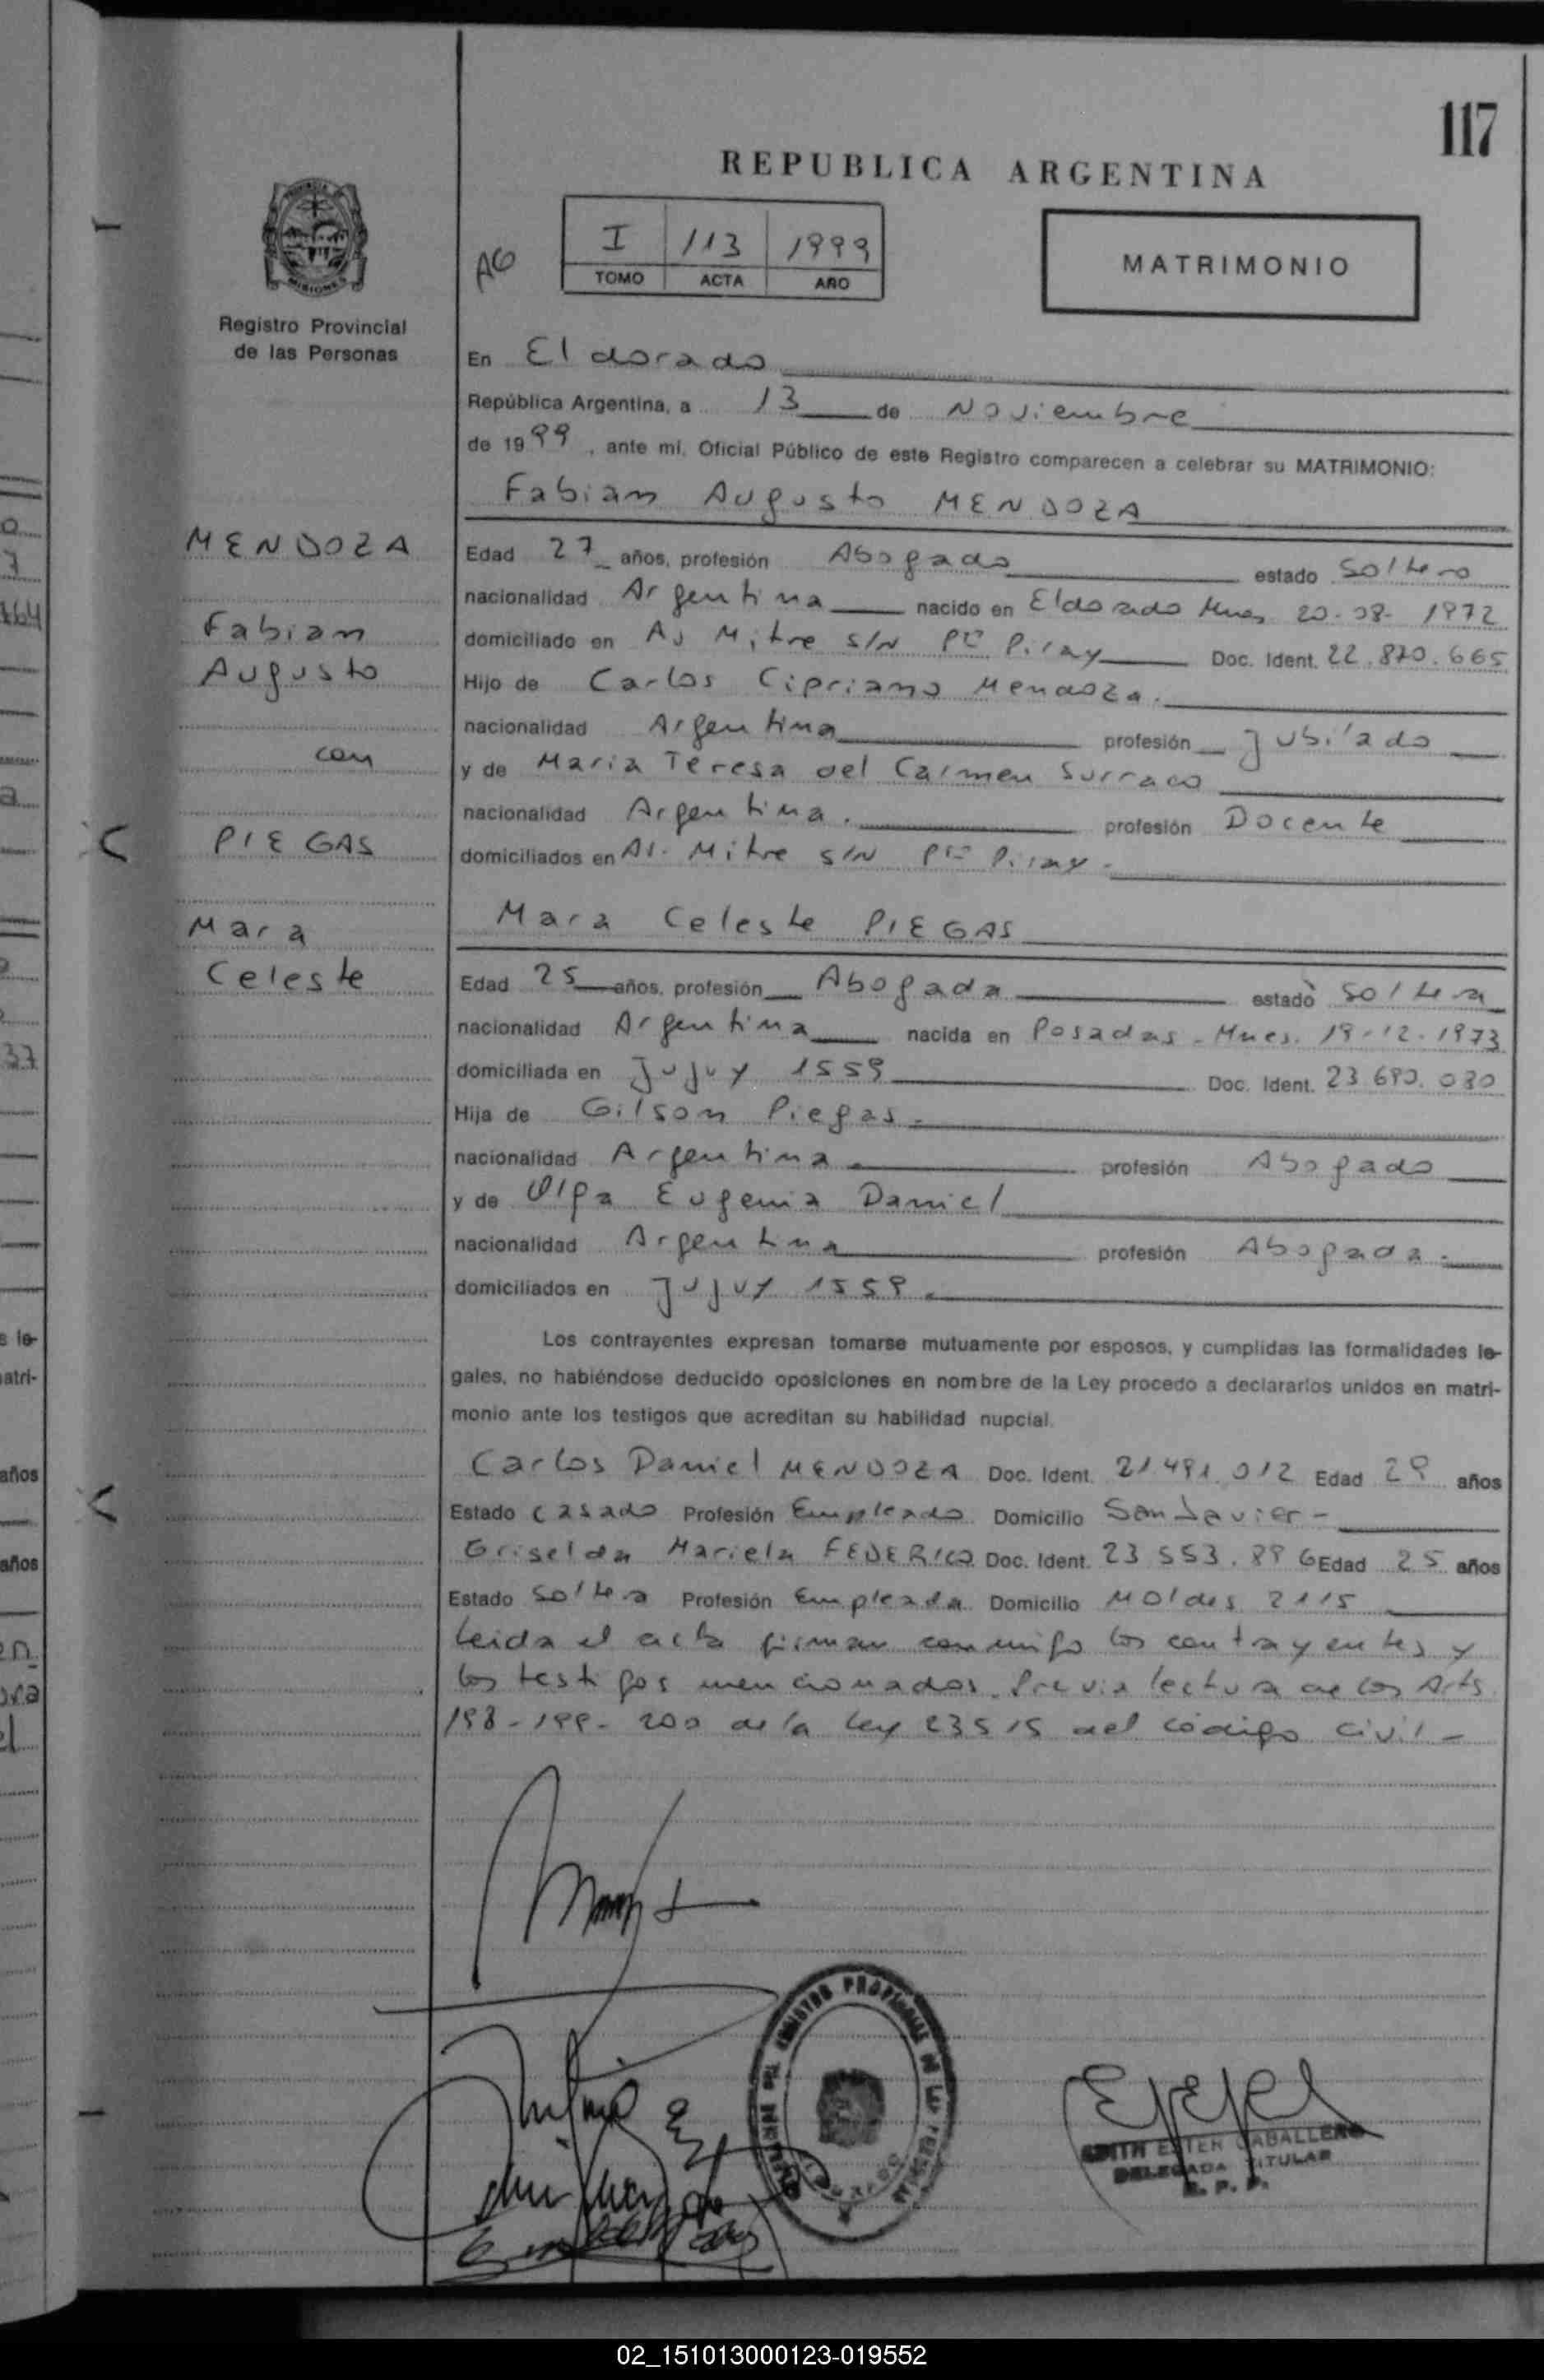 117
REPUBLICA ARGENTINA
I 113 1999
TOMO ACTA AÑO
AG
MATRIMONIO
MISIONES
Registro Provincial
de las Personas
En Eldorado
República Argentina, a 13 de Noviembre
de 1999, ante mí, Oficial Público de este Registro comparecen a celebrar su MATRIMONIO:
Fabian Augusto MENDOZA
MENDOZA
Fabian
Augusto
con
PIEGAS
Mara
Celeste
Edad 27 años, profesión Abogado estado Soltero
nacionalidad Argentina nacido en Eldorado Mnes 20-08-1972
domiciliado en Av Mitre S/N Pto Piray Doc. Ident. 22.870.665
Hijo de Carlos Cipriano Mendoza.
nacionalidad Argentina profesión Jubilado
y de Maria Teresa del Carmen Surraco
nacionalidad Argentina. profesión Docente
domiciliados en Av. Mitre S/N Pto Piray -
Mara Celeste PIEGAS
Edad 25 años, profesión Abogada estado Soltera
nacionalidad Argentina nacida en Posadas - Mnes. 19-12-1973
domiciliada en Jujuy 1559 Doc. Ident. 23.690.080
Hija de Gilson Piegas.
nacionalidad Argentina profesión Abogado
y de Olga Eugenia Daniel
nacionalidad Argentina profesión Abogada.
domiciliados en Jujuy 1559.
Los contrayentes expresan tomarse mutuamente por esposos, y cumplidas las formalidades le-
gales, no habiéndose deducido oposiciones en nombre de la Ley procedo a declararlos unidos en matri-
monio ante los testigos que acreditan su habilidad nupcial.
Carlos Daniel MENDOZA Doc. Ident. 21.491.012 Edad 29 años
Estado casado Profesión Empleado Domicilio San Javier -
Griselda Mariela FEDERICO Doc. Ident. 23.553.896 Edad 25 años
Estado Soltera Profesión Empleada Domicilio Moldes 2115
Leida el acta firman conmigo los contrayentes y
los testigos mencionados. Previa lectura de los Arts
198-199-200 de la Ley 23515 del código civil -
EDITH ESTER CABALLERO
DELEGADA TITULAR
R. P. P.
02_151013000123-019552